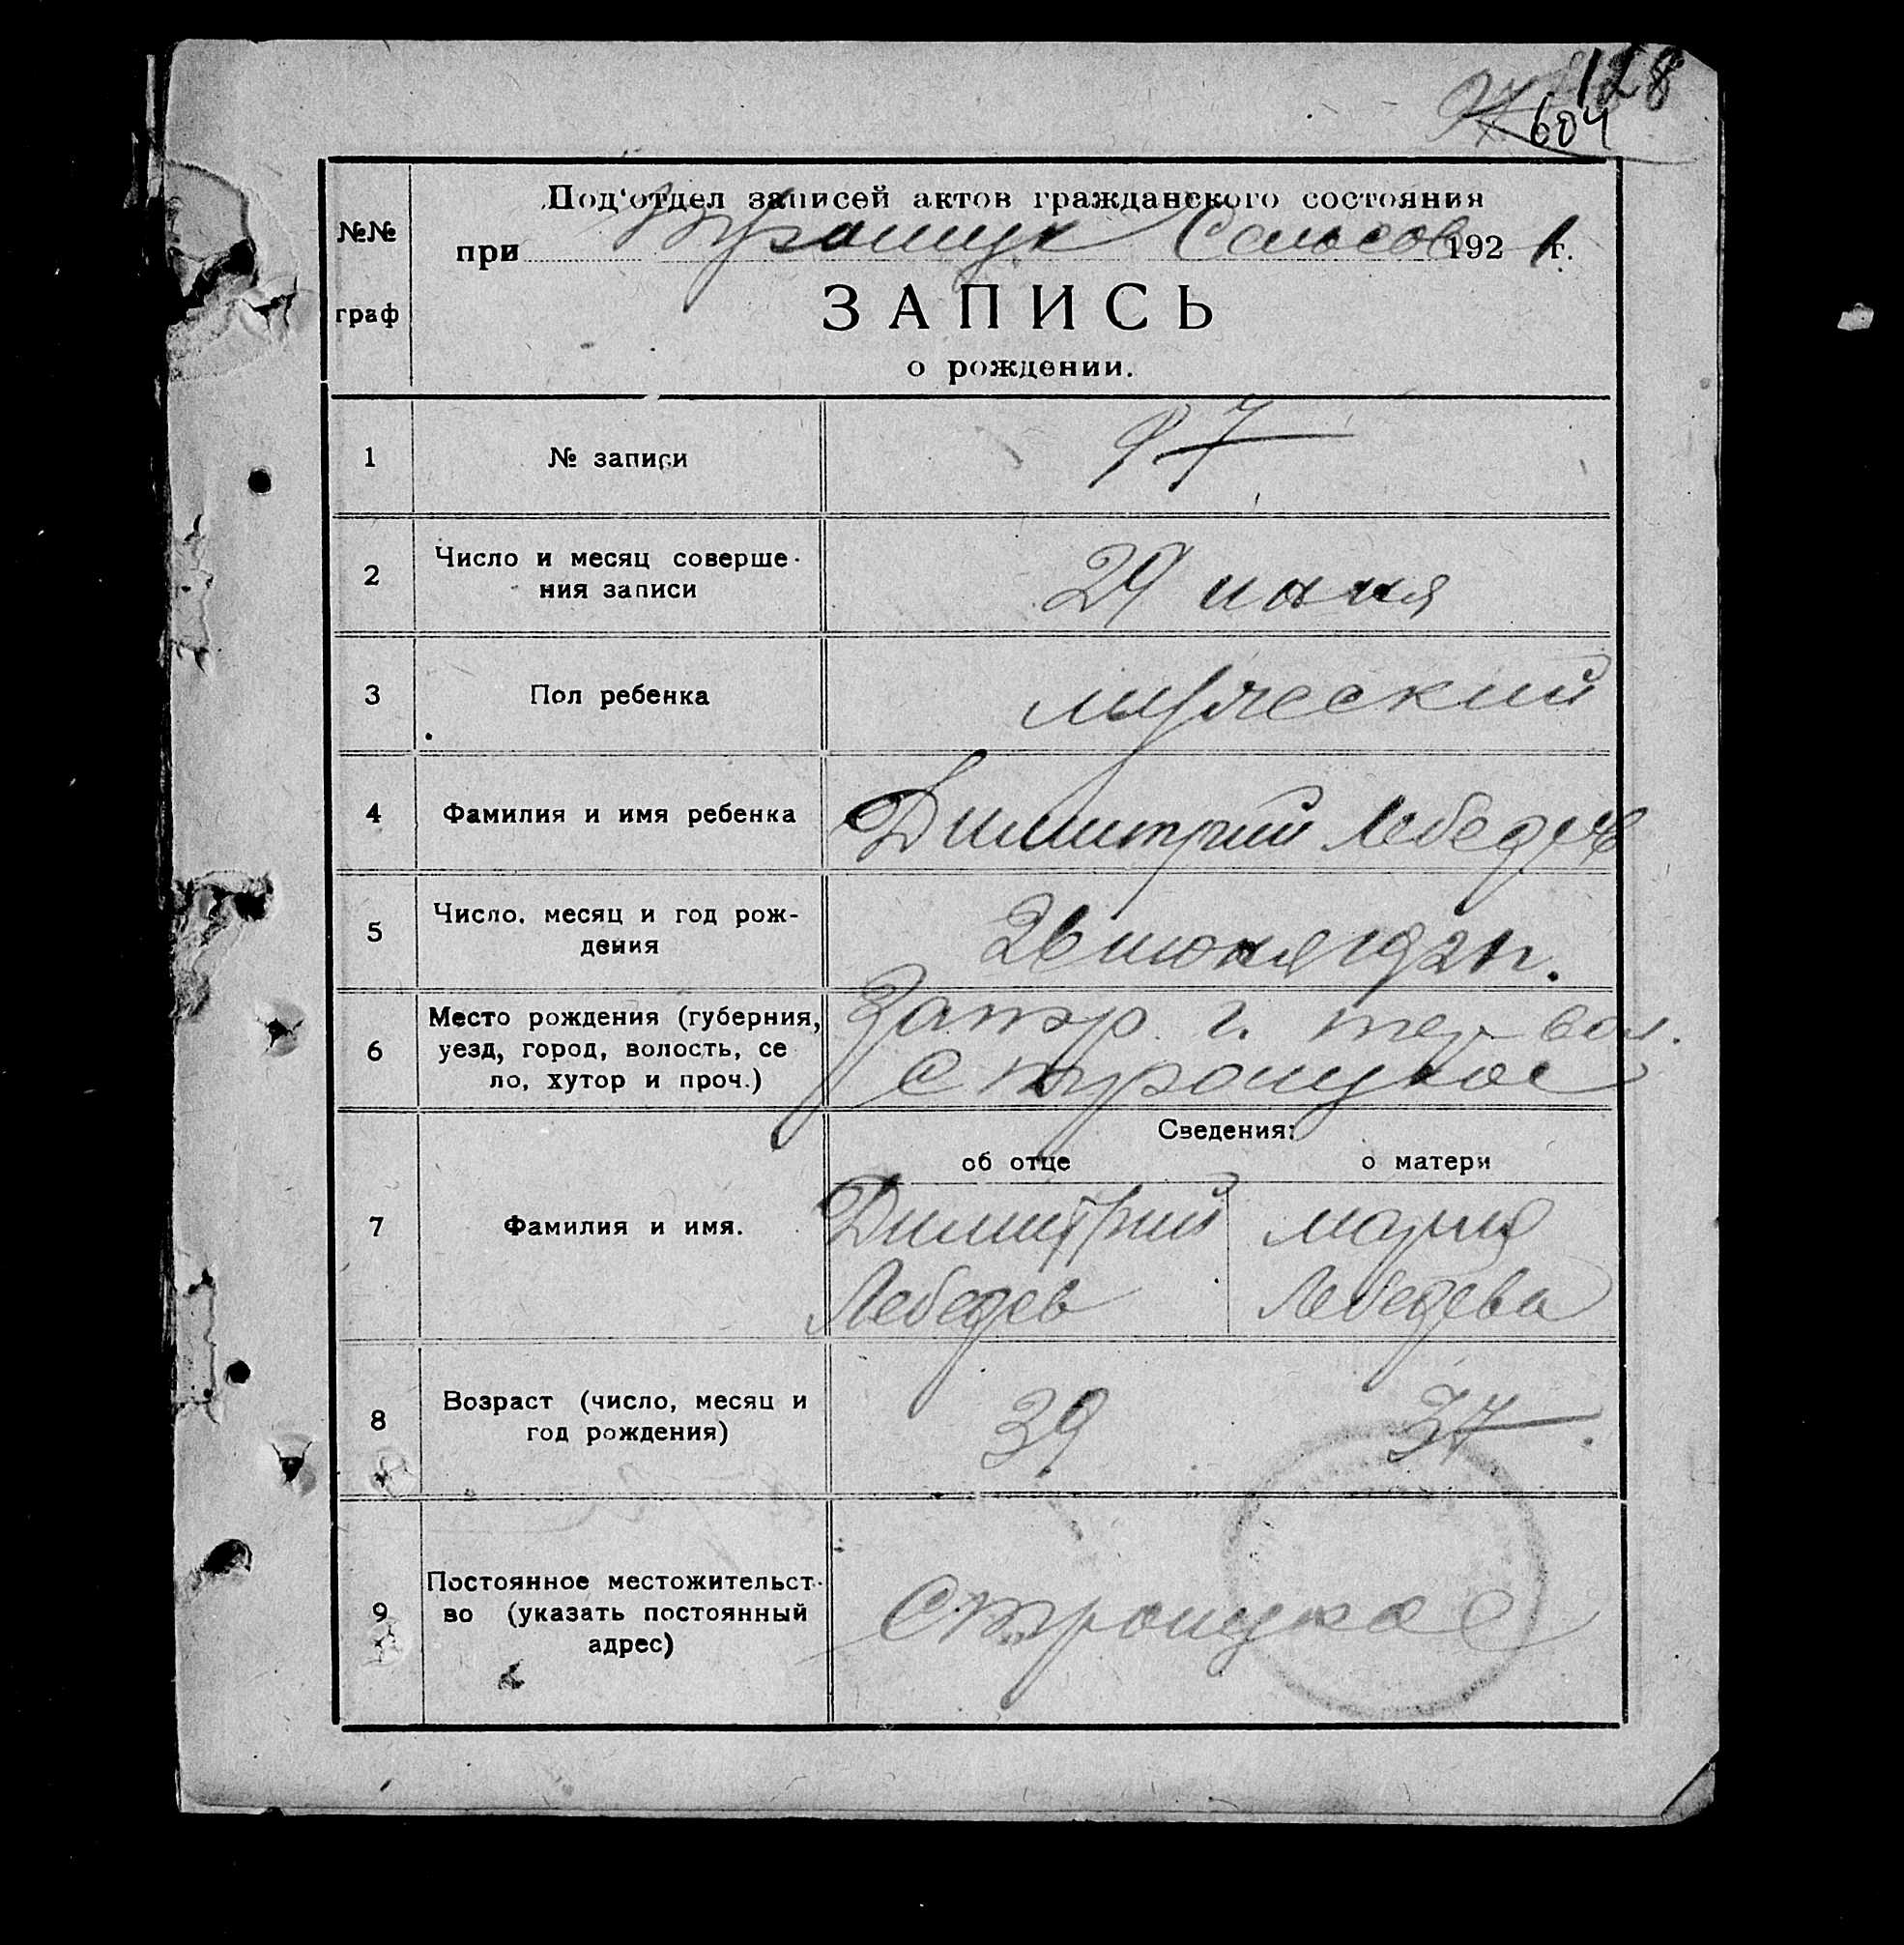 128
97 604
Под‘отдел записей актов гражданского состояния
№№
при Троицк Сельсов 1921 г.
граф
ЗАПИСЬ
о рождении.
1 № записи 97
2 Число и месяц соверше-
ния записи 29 июня
3 Пол ребенка мужеский
4 Фамилия и имя ребенка Димитрий Лебедев
5 Число, месяц и год рож-
дения 26 июня 1921 г.
6 Место рождения (губерния,
уезд, город, волость, се
ло, хутор и проч.)
Запор. г. вол.
с Троицкое
Сведения:
об отце о матери
7 Фамилия и имя.
Димитрий Мария
Лебедев Лебедева
8 Возраст (число, месяц и
год рождения) 39 37
9 Постоянное местожительст-
во (указать постоянный
адрес)
с Троицкое